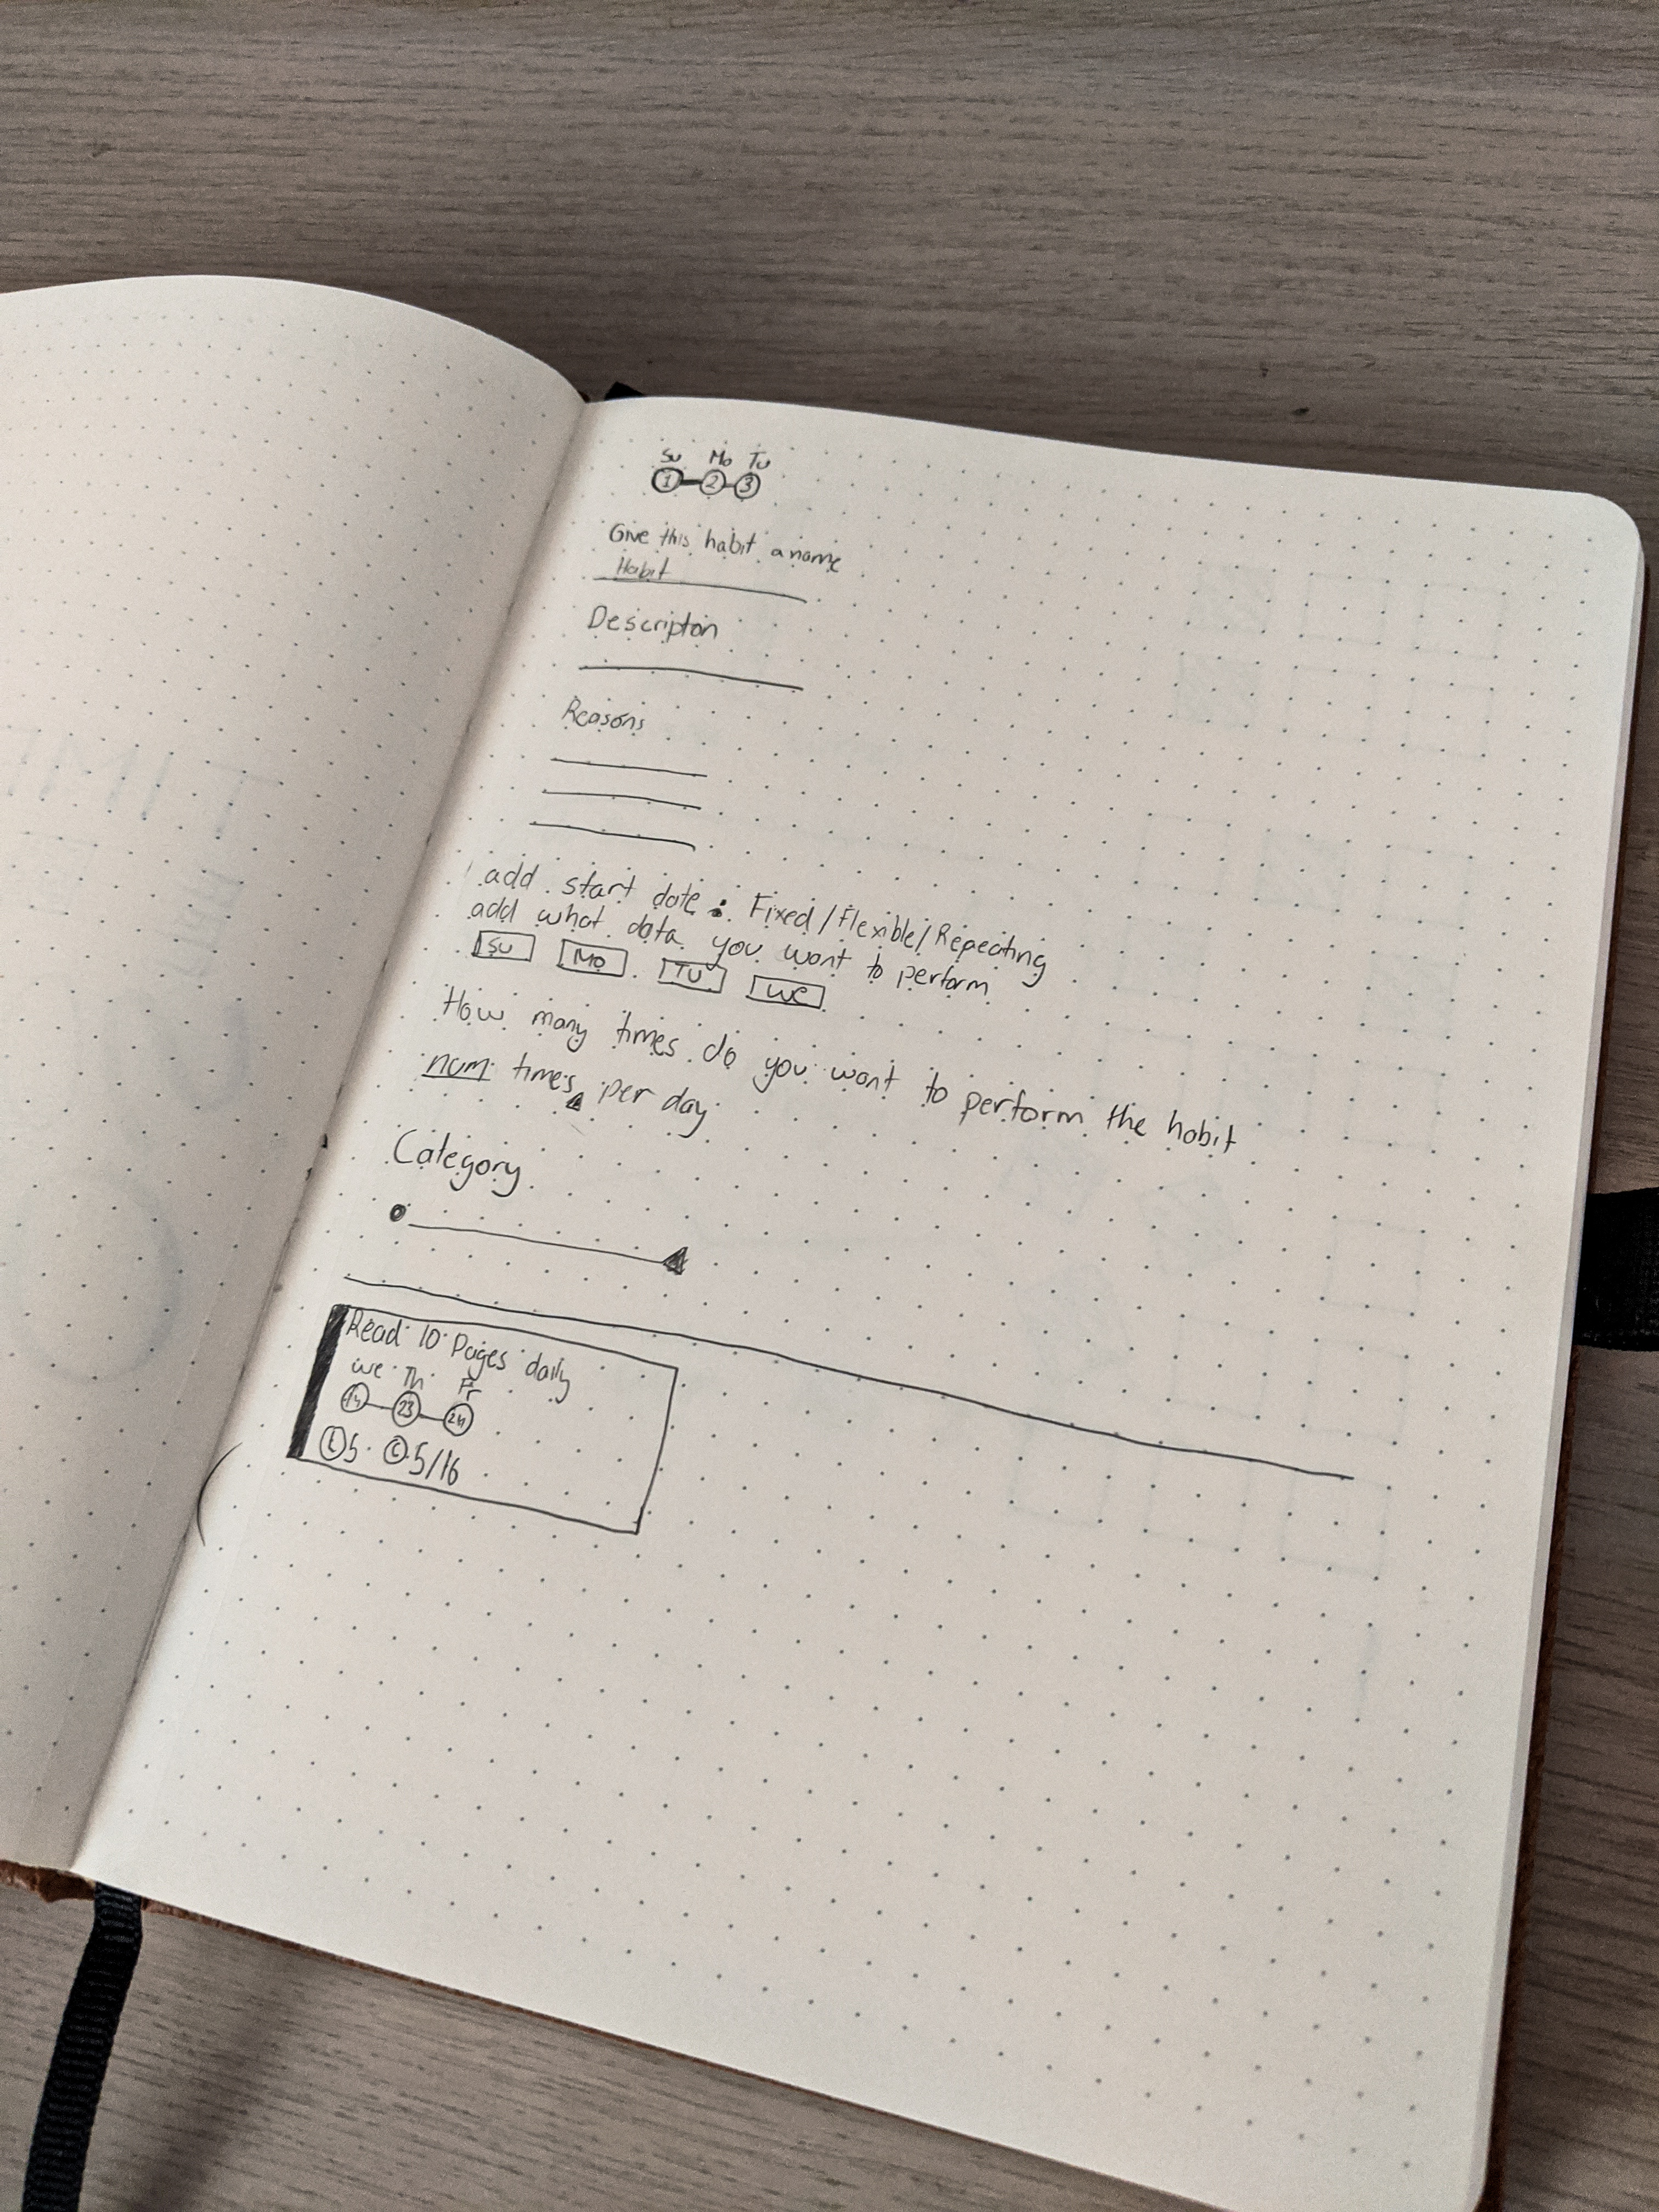 Su Mo Tu
1 2 3
Give this habit a name
Habit
Descripton
Reasons
add start date: Fixed/Flexible/Repeating
add what data you want to perform
Su Mo TU We
How many times do you want to perform the habit
num times per day
Category
Read 10 Pages daily
We Th Fr
23 24
5 C 5/16